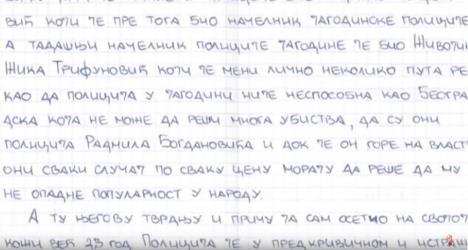 вић који је пре тога био начелник јагодинске полиције
а тадашњи начелник полиције јагодине је био Животи
Жика Трифуновић који је мени лично неколико пута ре
као да полиција у јагодини није неспособна као Београ
дска која не може да реши многа убиства, да су они
полиција Радмила Богдановића и док је он горе на власт
они сваки случај по сваку цену морају да реше да му
не опадне популарност у народу.
А ту његову тврдњу и причу ја сам осетио на својој
кожи већ 23 год. Полиција је у предкривичном и истраж